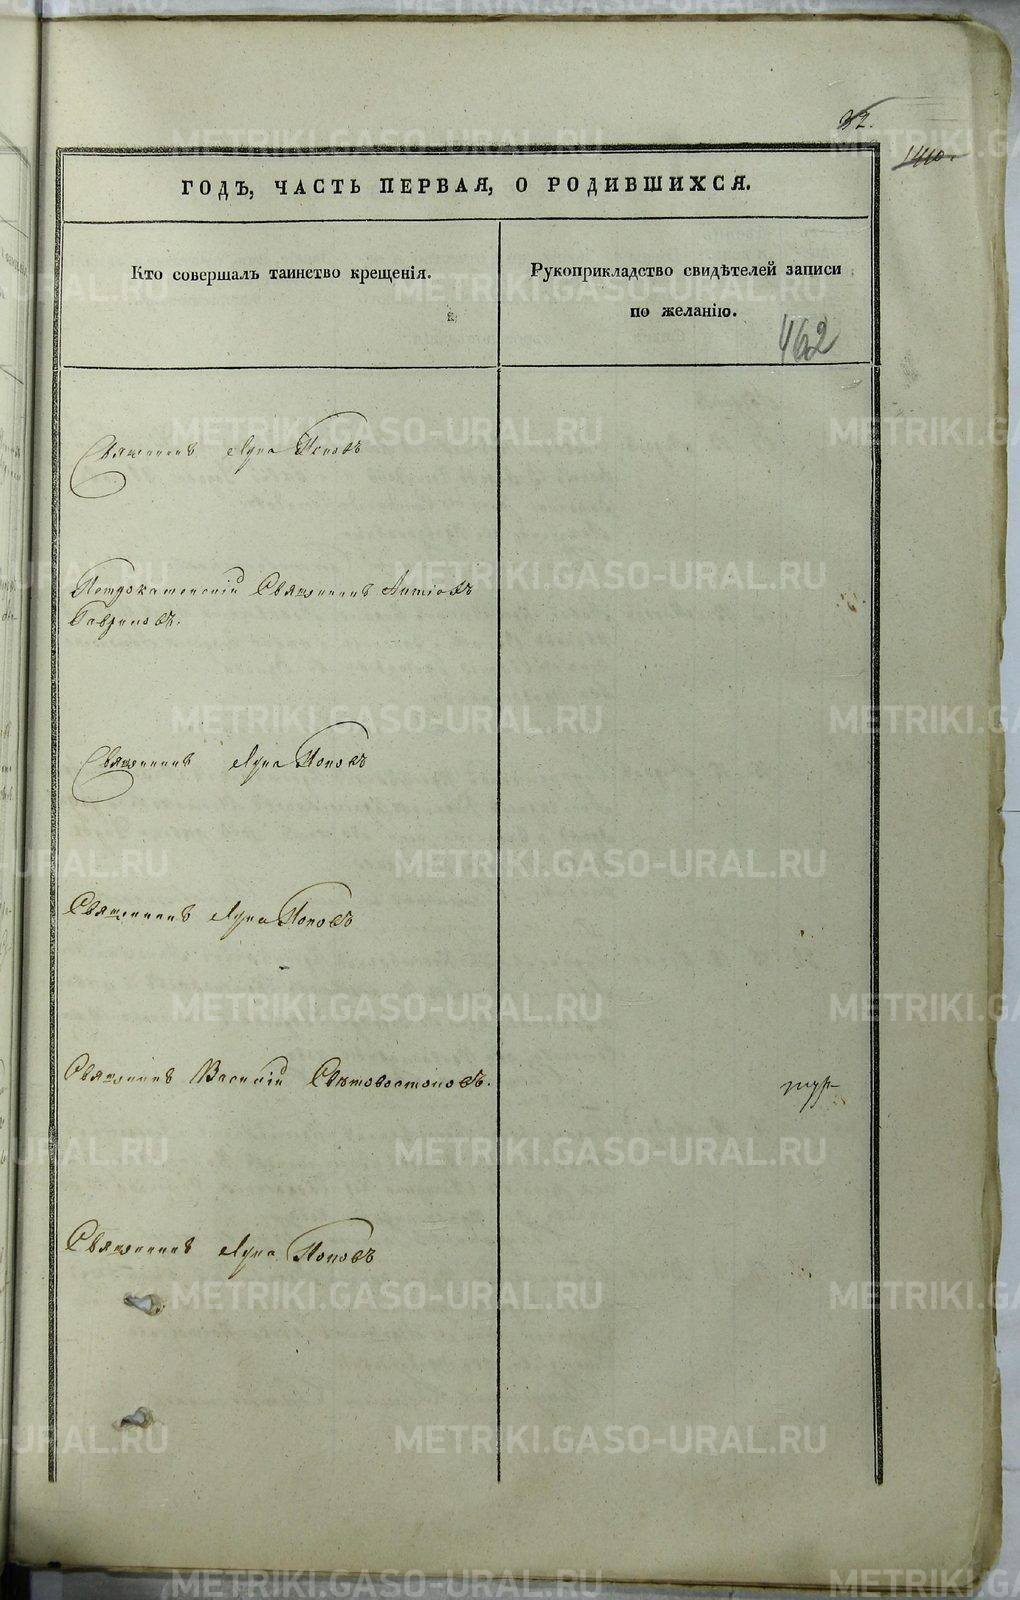 32.
1110.
ГОДЪ, ЧАСТЬ ПЕРВАЯ, О РОДИВШИХСЯ.
Кто совершалъ таинство крещенія.
Рукоприкладство свидѣтелей записи
по желанію.
462
Священникъ Лука Поповъ
Священникъ
Гавриловъ.
Священникъ Лука Поповъ
Священникъ Лука Поповъ
Священникъ Василій Свѣтовостоковъ.
Священникъ Лука Поповъ
METRIKI.GASO-URAL.RU